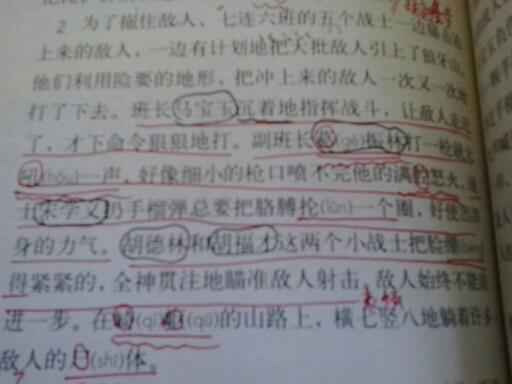 2 为了拖住敌人,七连六班的五个战士一边痛击追
上来的敌人,一边有计划地把大批敌人引上了狼牙山。
他们利用险要的地形,把冲上来的敌人一次又一次地
打了下去。班长马宝玉沉着地指挥战斗,让敌人走近
了,才下命令狠狠地打。副班长葛(gě)振林打一枪就大
吼(hǒu)一声,好像细小的枪口喷不完他的满腔怒火。战
士宋学义扔手榴弹总要把胳膊抡(lūn)一个圈,好使出浑
身的力气。胡德林和胡福才这两个小战士把脸绷(běng)
得紧紧的,全神贯注地瞄准敌人射击。敌人始终不能前
进一步。在崎(qí)岖(qū)的山路上,横七竖八地躺着许多
敌人的尸(shī)体。